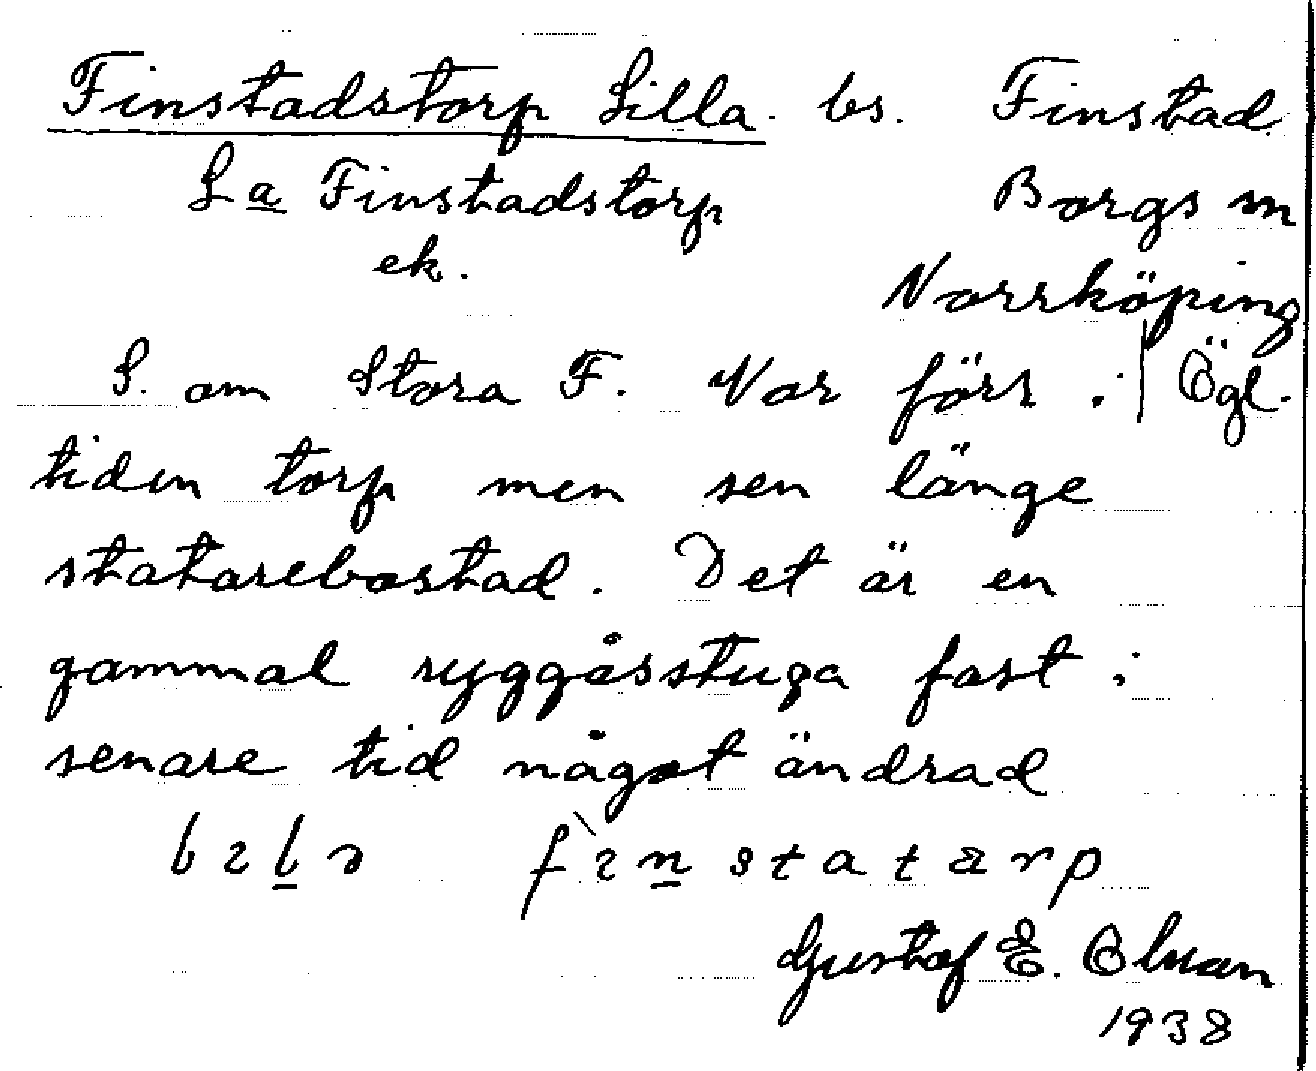 Finstadstorp Lilla. bs. Finstad
La Finstadstorp Borgs sn
ek. Norrköping
S. om Stora F. Var förr i Ögl.
tiden torp men sen länge
statarebostad. Det är en
gammal ryggåsstuga fast i
senare tid något ändrad
Gustaf E. Olman
1938